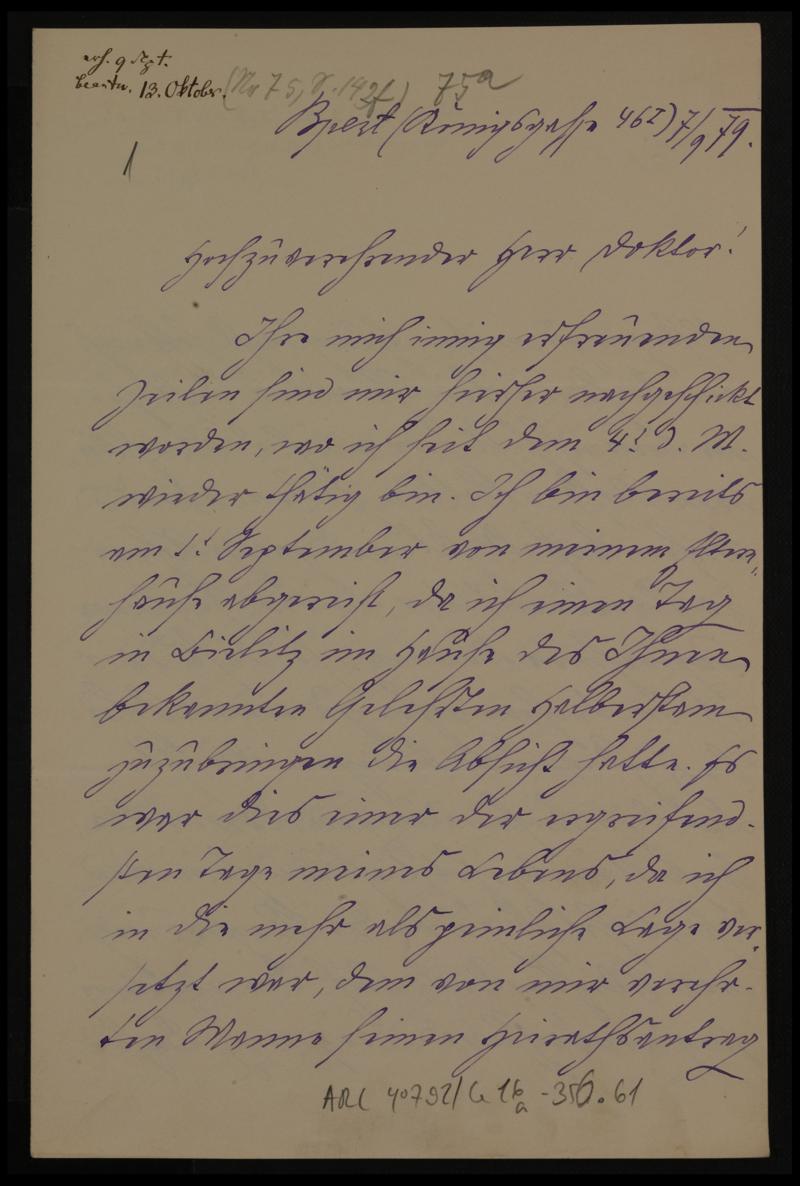 erh. 9 Spt.
beantw. 13. Oktober. (Nr 75, S. 142f) 75a
Bpest (Königsgasse 46 I) 7/9 79.
1
Hochzuverehrender Herr Doktor!
Ihre mich innig erfreuenden
Zeilen sind mir hierher nachgeschickt
worden, wo ich seit dem 4. d. M.
wieder thätig bin. Ich bin bereits
am 1. September von meinem Eltern-
hause abgereist, da ich einen Tag
in Bielitz im Hause des Ihnen
bekannten Gelehrten Halberstam
zuzubringen die Absicht hatte. Es
war dies einer der ergreifend-
sten Tage meines Lebens, da ich
in die mehr als peinliche Lage ver-
setzt war, dem von mir verehr-
ten Manne seinen Heirathsantrag
ARC 4°792/